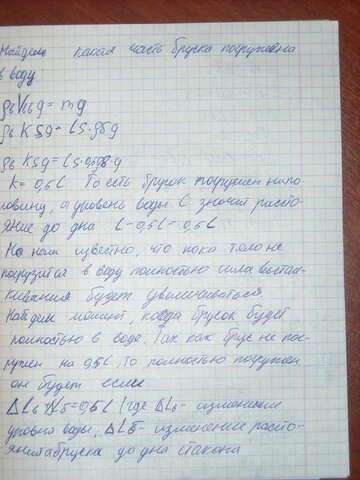 Найдем какая часть бруска погружена
в воду:
ρв Vвб g = mg
ρв KSg = LS·ρбg
ρв KSg = LS·0,5ρв·g
k = 0,5L То есть брусок погружен напо-
ловину, а уровень воды L значит рассто-
яние до дна L-0,5L = 0,5L
Но нам известно, что пока тело не
погрузится в воду полностью сила вытал-
кивания будет увеличиваться.
Найдем момент, когда брусок будет
полностью в воде. Так как брус не пог-
ружен на 0,5L, то полностью погружен
он будет если
ΔLв+ΔLб=0,5L (где ΔLв- изменение
уровня воды, ΔLб- изменение рассто-
яния бруска до дна стакана